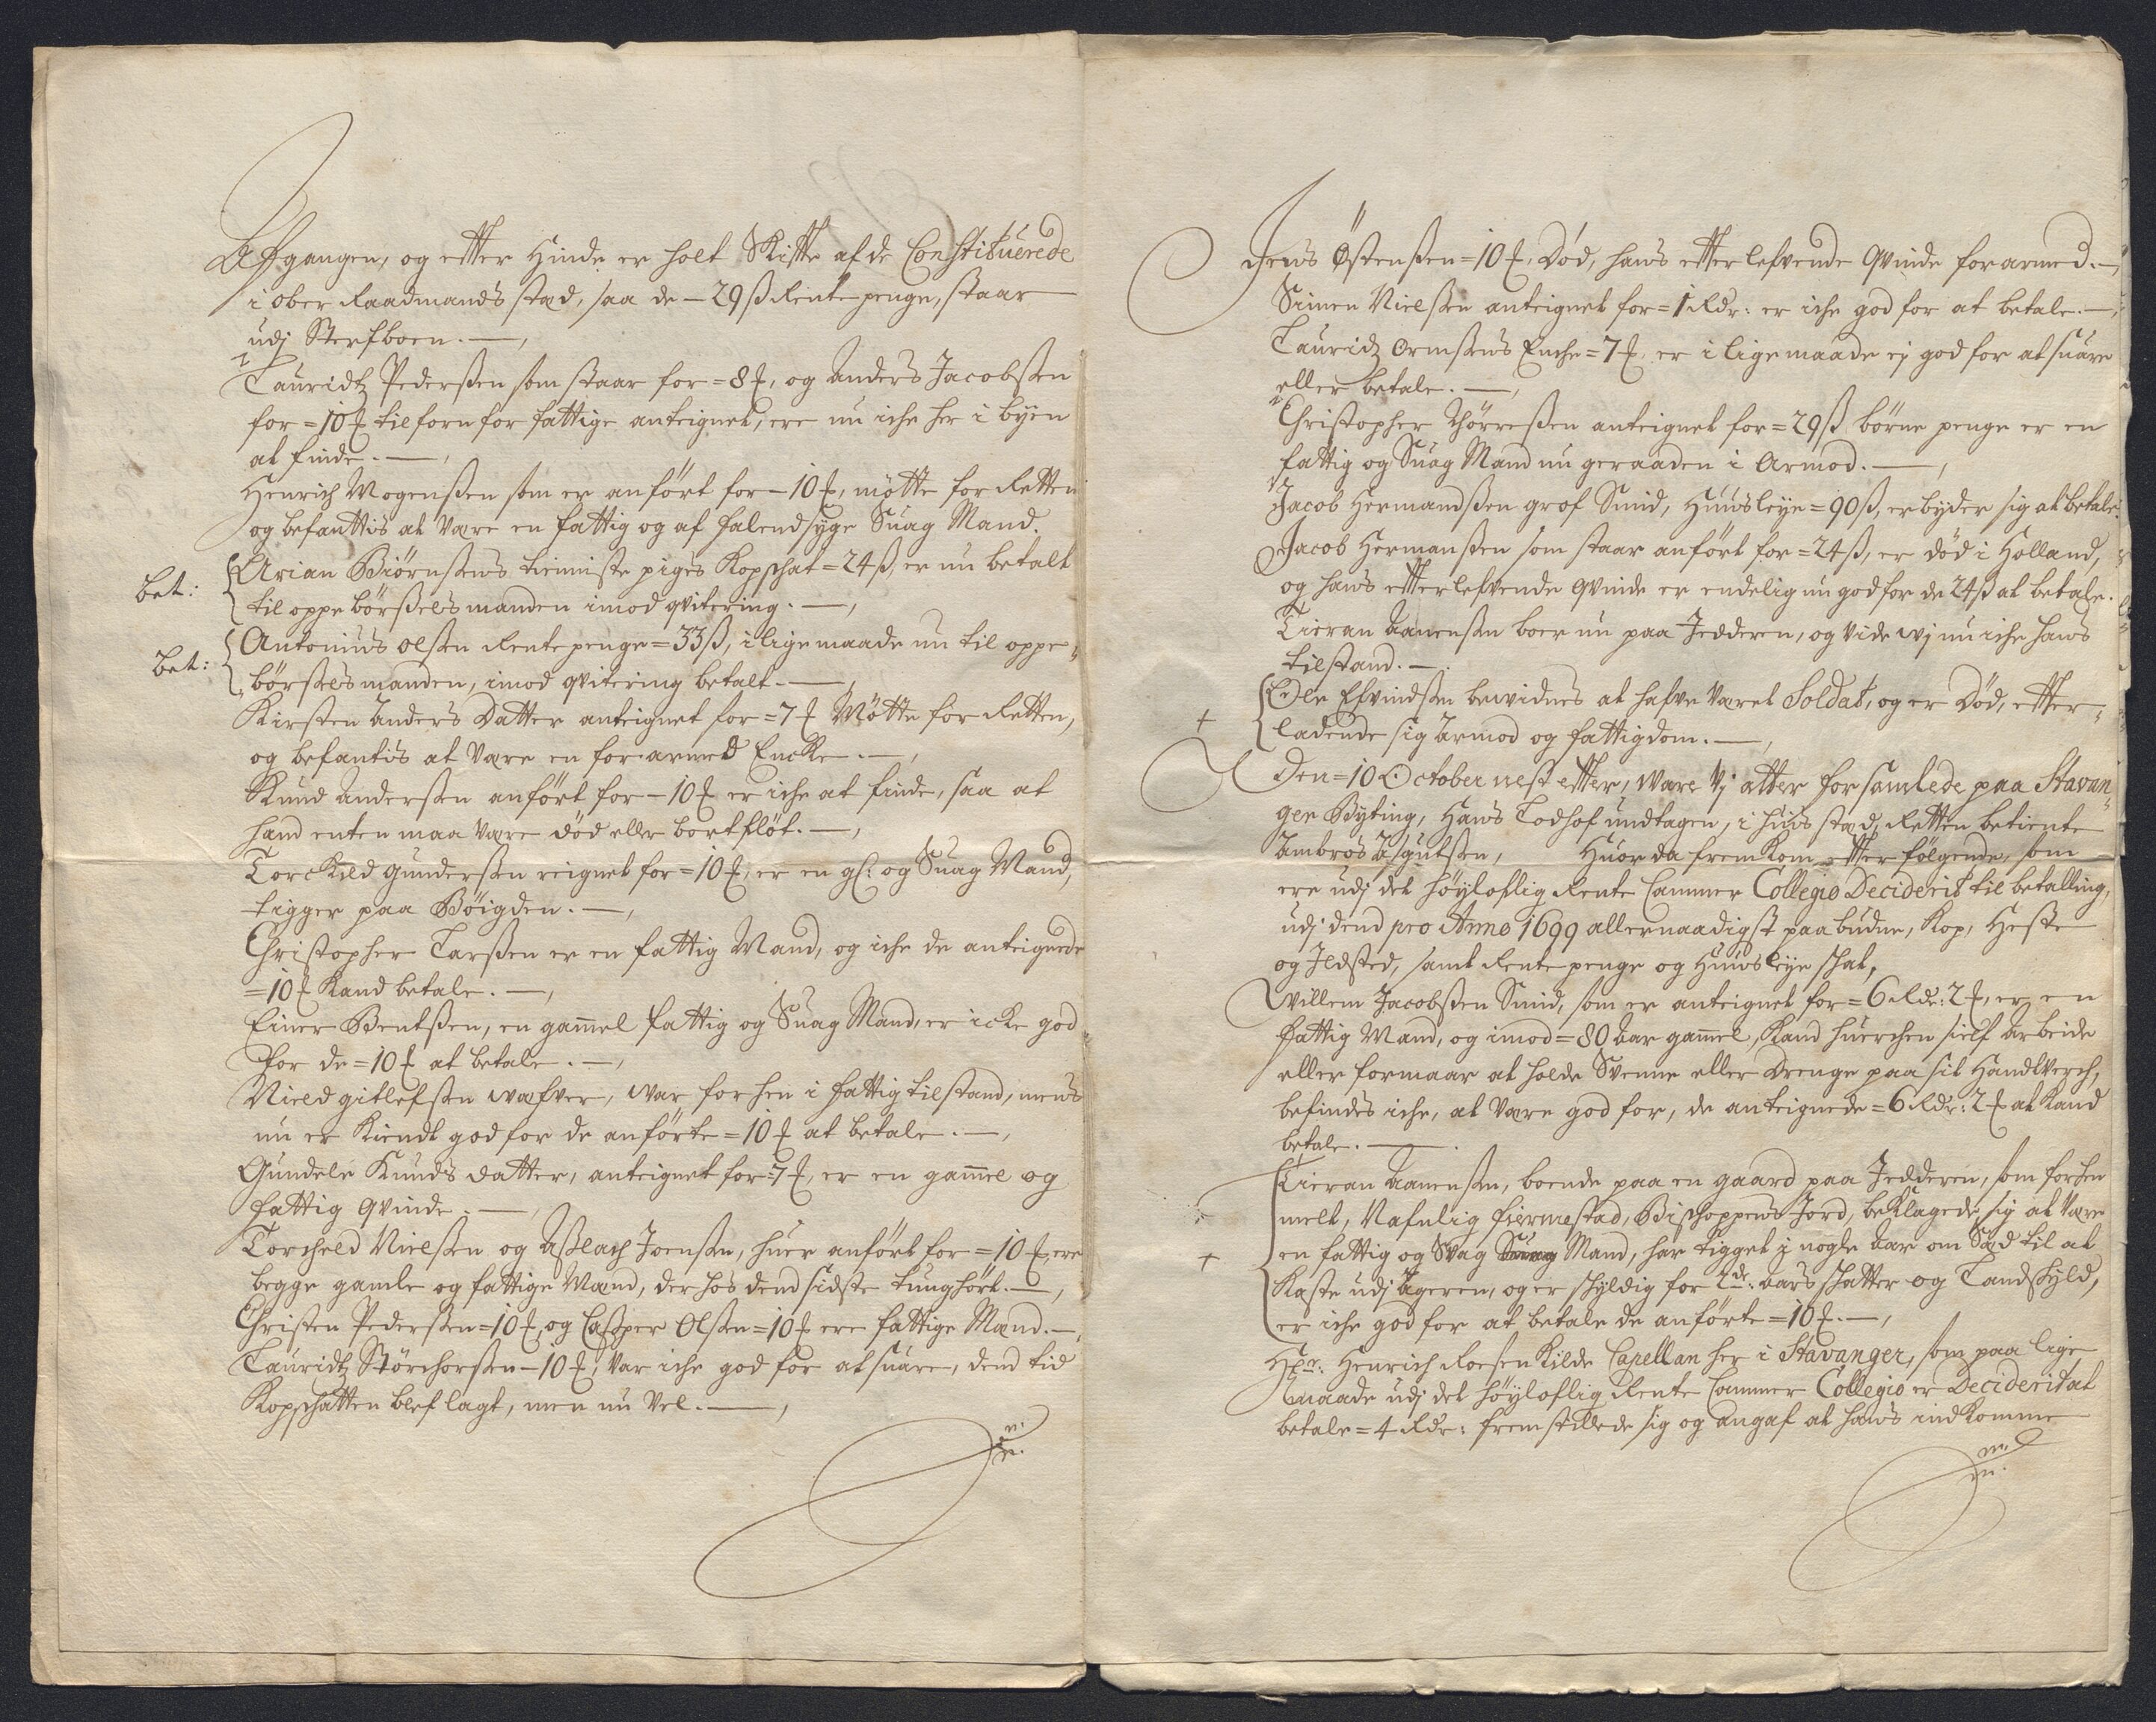 Afgangen, og efter Hinde er holt Skifte af de Constituerede
i Ober Raadmands stad, saa de - 29 ß Rente penge, staar
udj Sterfboen. —,
Lauridtz Pederßen som staar for = 8 ₤, og Anders Jacobßen
for = 10 ₤ tilforn for fattige anteignet, ere nu iche her i byen
at finde. —,
Henrich Mogenßen som er anført for - 10 ₤, møtte for Retten
og befanttis at være en fattig og af falendsyge Suag Mand.
bet: Arian Biørnsens tienniste piges Kopschat = 24 ß, er nu betalt
til oppebørßels manden imod qvitering. —,
bet: Antonius Olsen Rente penge = 33 ß, i lige maade nu til oppe„
børsels manden, imod qvitering betalt. —,
Kirsten Anders Datter anteignet for = 7 ₤ Møtte for Retten,
og befantis at være en forarmed Encke. —,
Knud Anderßen anført for - 10 ₤ er iche at finde, saa at
hand enten maa være død eller bortfløt. —,
Torckild Gunderßen reignet for = 10 ₤, er en gl: og Suag Mand,
tigger paa Bøigden. —,
Christopher Larßen er en fattig Mand, og iche de anteignede
= 10 ₤ Kand betale. —,
Einer Bentßen, en gam̄el fattig og Suag Mand, er icke god
for de = 10 ₤ at betale. —,
Nield gitlefsen wæfver, war forhen i fattig tilstand, mens
nu er Kiendt god for de anførte = 10 ₤ at betale. —,
Gundele Knuds datter, anteignet for = 7 ₤, er en gam̄el og
fattig qvinde. —,
Torcheld Nielßen og Aßlach Joenßen, huer anført for = 10 ₤, ere
begge gamle og fattige Mænd, der hos dend sidste tunghørt. —,
Christen Pederßen = 10 ₤, og Casper Olßen = 10 ₤ ere fattige Mænd. —,
Lauridtz Størchorßen - 10 ₤, var iche god for at suare, dend tid
Kopschatten blef lagt, men nu vel. —,
Jens Østenßen = 10 ₤, død, hans efterlefvende qvinde forarmed. —,
Simen Nielßen anteignet for = 1 Rdr: er iche god for at betale. —,
Lauridz Ormsens Enche = 7 ₤, er i lige maade ej god for at suare
eller betale. —,
Christopher Thørreßen anteignet for = 29 ß børne penge er en
fattig og Suag Mand nu geraaden i Armod. —,
Jacob Hermandßen grof Smid, Huusleye = 90 ß, erbyder sig at betale.
Jacob Hermanßen som staar anført for = 24 ß, er død i Holland,
og hans efterlefvende qvinde er endelig nu god for de 24 ß at betale.
Tieran Aanenßen boer nu paa Jedderen, og vide wj nu iche hans
tilstand. —.
+ Ole Efvindßen bevidnes at hafve været Soldat, og er død, efter„
ladende sig Armod og fattigdom. —,
Den = 10 October nest efter, ware Vj atter forsamlede paa Stavan„
ger Byting, Hans Todhof undtagen, i huis stæd, Retten betiente
Ambros Asgutßen, Huor da fremkom efterfølgende, som —
ere udj det høyloflig Rente Cammer Collegio Deciderit til betalling,
udj dend pro Anno 1699 allernaadigst paabudne, Kop, Heste
og Jldsted, samt Rente penge og Huusleye schat,
Willem Jacobßen Smid, som er anteignet for = 6 Rdr: 2 ₤, er en
fattig Mand, og imod = 80 Aar gam̄el, Kand huerchen sielf Arbeide
eller formaar at holde Svenne eller Drenge paa sit Handtverch,
befindes iche, at være god for, de anteignede = 6 Rdr: 2 ₤ at Kand
betale. —.
Tieran Aanenßen, boende paa en gaard paa Jedderen, som forhen
melt, Nafnlig Fiermestad, Bischoppens Jord, beklagede sig at være
+ en fattig og Svag Mand, har tigget i nogle Aar om Sæd til at
Kaste udj Ageren, og er schyldig for 2de: Aars schatter og Landschyld,
er iche god for at betale de anførte = 10 ₤. —,
Hr: Henrich Roesenkilde Capellan her i Stavanger, som paa lige
maade udj det høyloflig Rente Cammer Collegio er Deciderit at
betale = 4 Rdr: fremstillede sig og angaf at hans indkomme